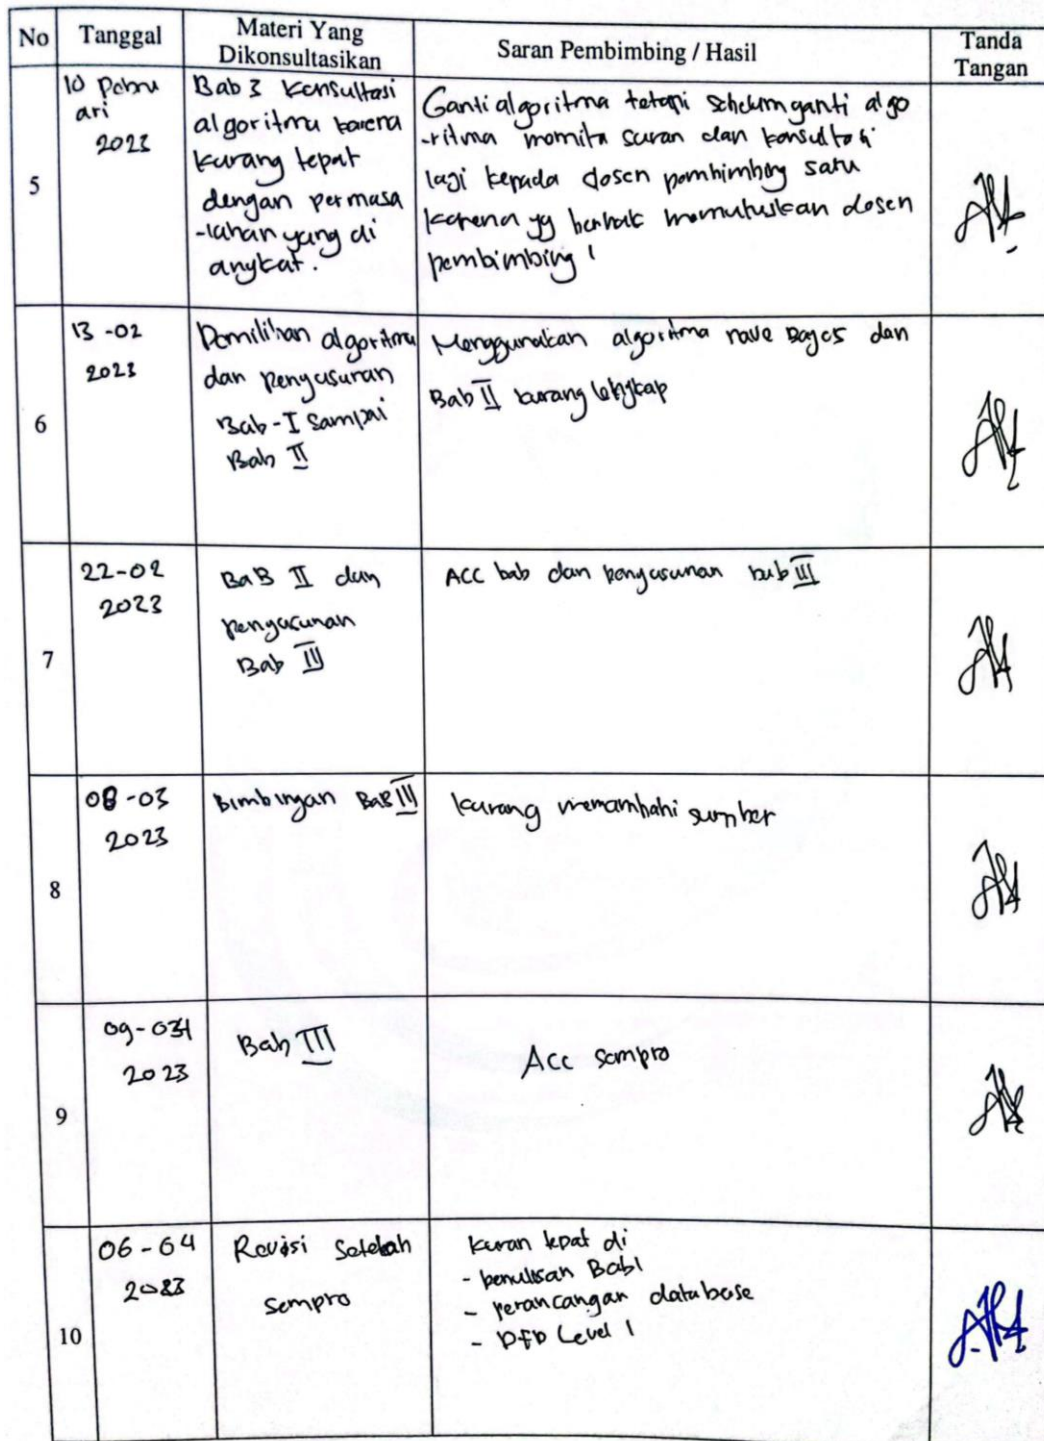 No Tanggal Materi Yang Dikonsultasikan Saran Pembimbing / Hasil Tanda Tangan
5
10 Pebru
ari
2023
Bab 3 Konsultasi
algoritma karena
kurang tepat
dengan permasa
-lahan yang di
angkat.
Ganti algoritma tetapi sebelum ganti algo
-ritma meminta saran dan konsultasi
lagi kepada dosen pembimbing satu
karena yg berhak memutuskan dosen
pembimbing 1
6
13-02
2023
Pemilihan algoritma
dan penyusunan
Bab-I sampai
Bab II
Menggunakan algoritma naive Bayes dan
Bab II kurang lengkap
7
22-02
2023
BaB II dan
penyusunan
Bab III
ACC bab dan penyusunan bab III
8
08-03
2023
Bimbingan BaB III
kurang memambahi sumber
9
2023
Bab III
Acc sempro
10
06-04
2023
Revisi Setelah
sempro
kuran tepat di
- penulisan Bab1
- perancangan database
- DFD Level 1